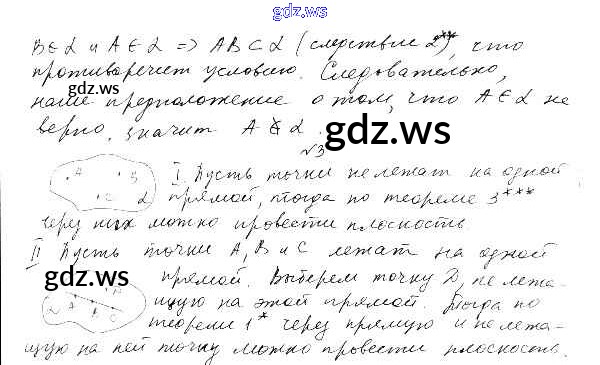 gdz.ws
B∈α и A∈α => AB⊂α (следствие 2**), что
противоречит условию. Следовательно,
наше предположение о том, что A∈α не
верно, значит A∉α.
gdz.ws
gdz.ws
√3
A B C α
I Пусть точки не лежат на одной
прямой, тогда по теореме 3***
через них можно провести плоскость.
II Пусть точки A, B и C лежат на одной
прямой. Выберем точку D, не лежа-
gdz.ws
gdz.ws
щую на этой прямой. Тогда по
теореме 1* через прямую и не лежа-
щую на ней точку можно провести плоскость.